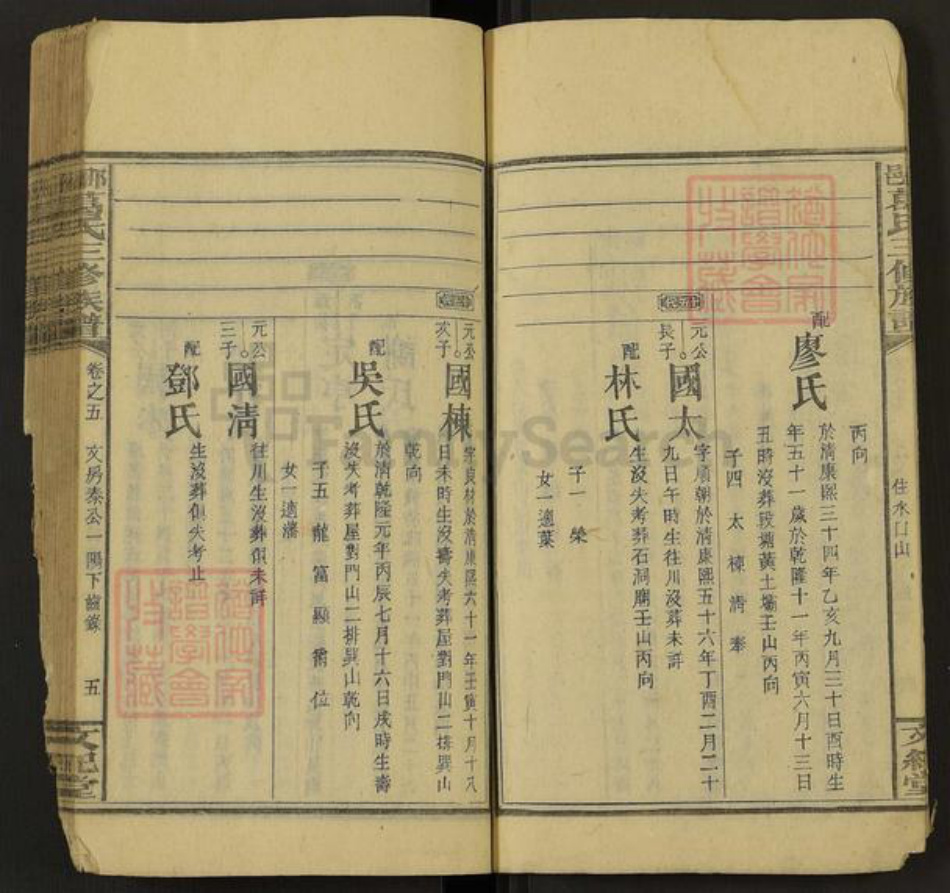 丙向
配
廖氏
於清康熙三十四年乙亥九月三十日酉時生
年五十一歲於乾隆十一年丙寅六月十三日
丑時沒葬段塘黃土塘壬山丙向
子四 太 棟 清 奉
元公
長子
國太
字順朝於清康熙五十六年丁酉二月二十
九日午時生往川沒葬未詳
配
林氏
生沒失考葬石洞廟壬山丙向
子一 榮
女一適葉
元公
次子
國棟
字良材於清康熙六十一年壬寅十月十八
日未時生沒壽失考葬屋對門山二排巽山
乾向
配
吳氏
於清乾隆元年丙辰七月十六日戌時生壽
沒失考葬屋對門山二排巽山乾向
子五 龍 富 顯 爵 位
女一適潘
元公
三子
國清
往川生沒葬俱未詳
配
鄧氏
生沒葬俱失考止
萬氏三修族譜
卷之五
文房泰公一陽下齒錄
五
文紀堂
住水口山
FamilySearch